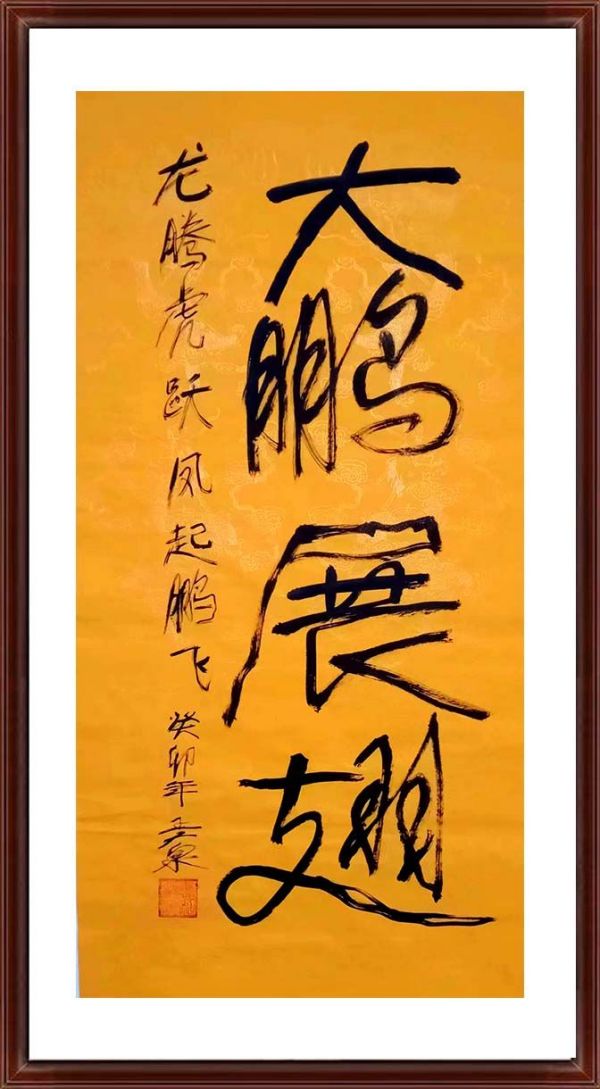 大鹏展翅
龙腾虎跃凤起鹏飞
癸卯年